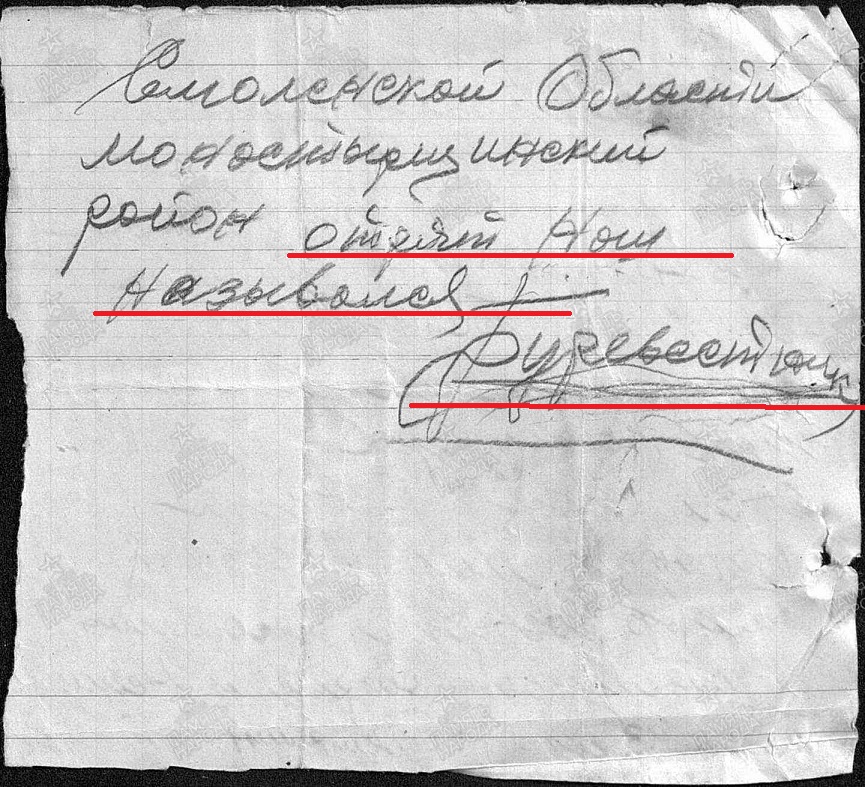 Смоленской Области
моностырщинский
район отрят Нош
назывался
Буревестник